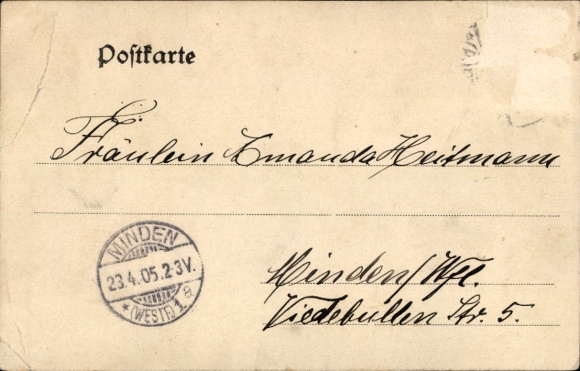 Postkarte
Fräulein Amanda Heitmann
MINDEN
23.4.05.2-3V.
* (WESTF.) 1 a
Minden/Wfl.
Videbullen Str. 5.